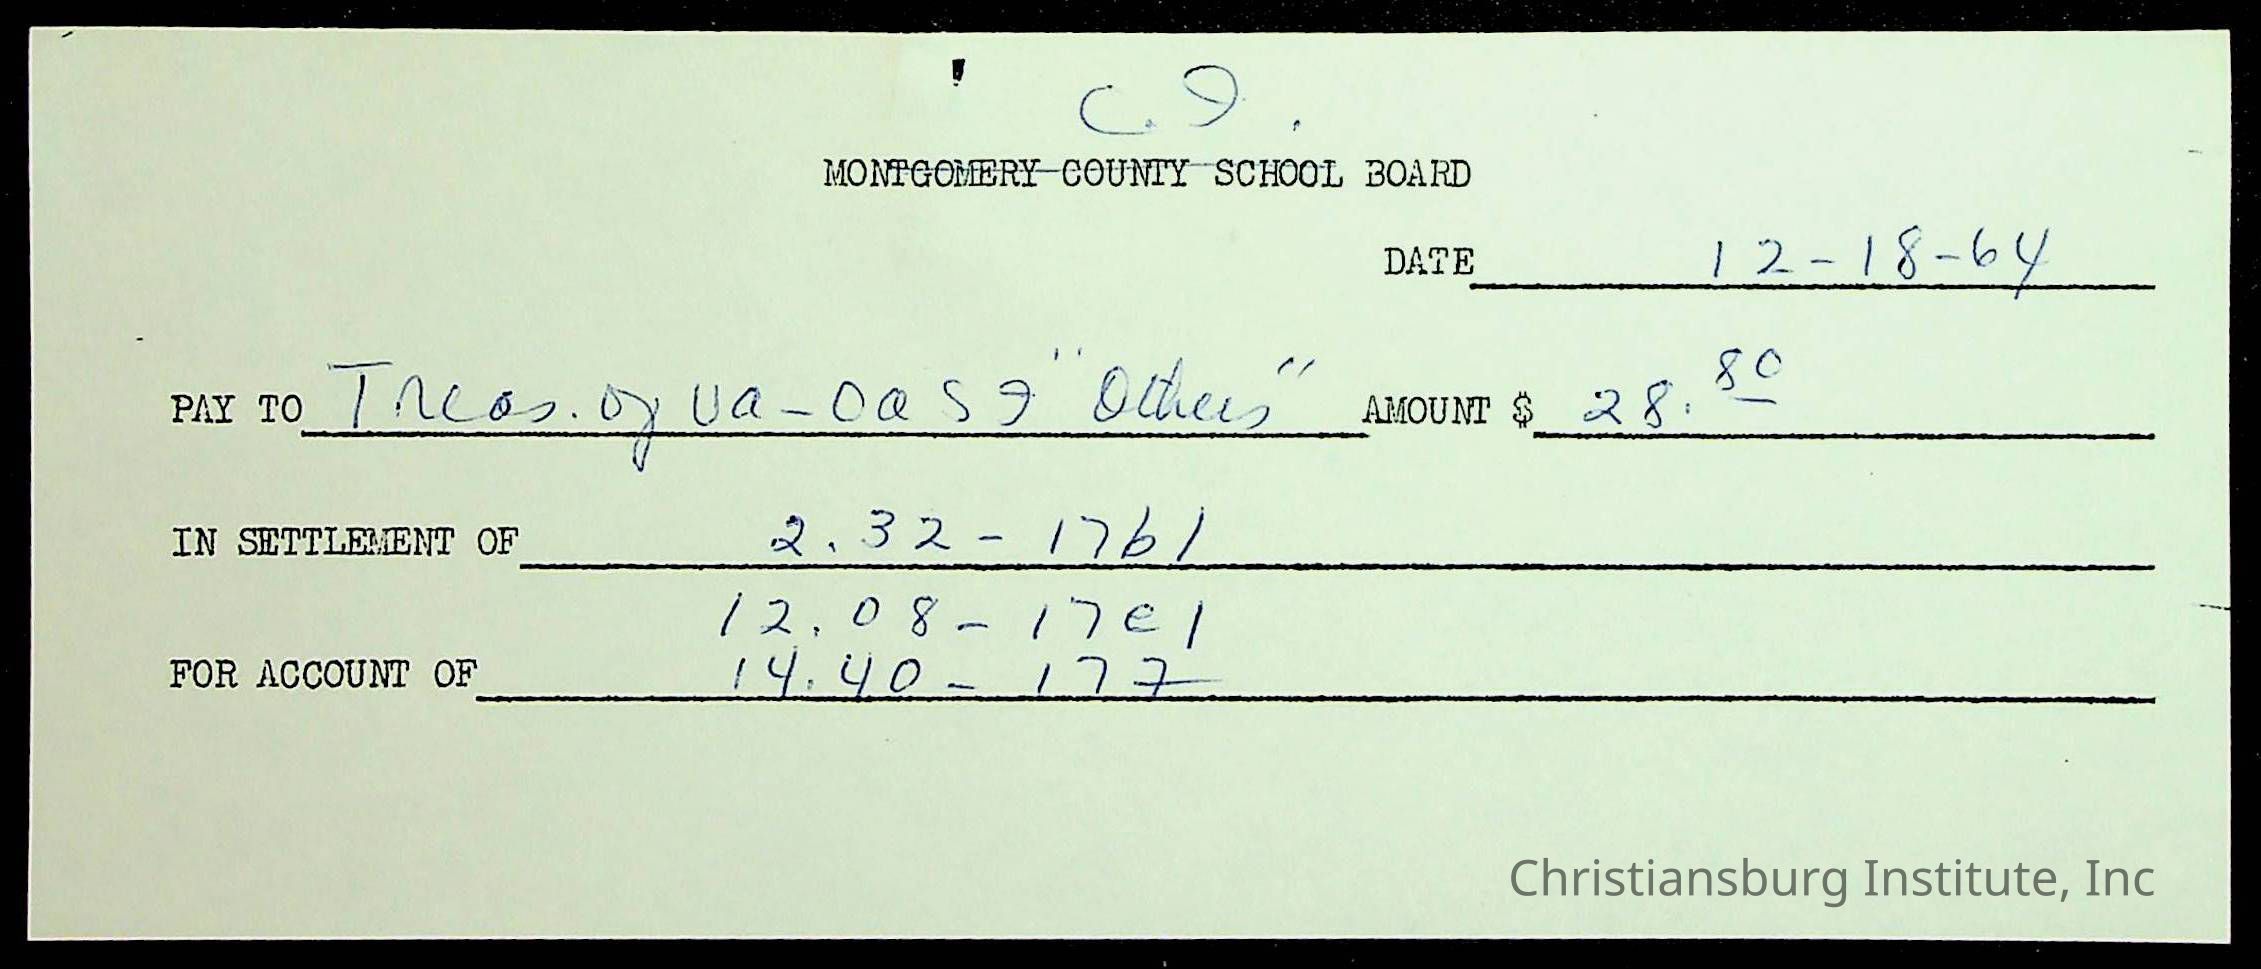 C. I.
MONTGOMERY COUNTY SCHOOL BOARD
DATE 12-18-64
PAY TO Treas. of Va - OASI "Others" AMOUNT $ 28.80
IN SETTLEMENT OF 2.32 - 17b1
12.08 - 17c1
FOR ACCOUNT OF 14.40 - 177
Christiansburg Institute, Inc